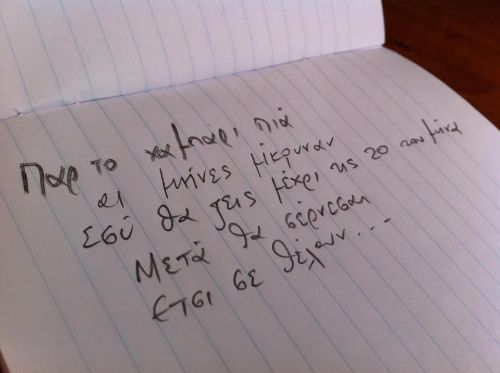 Παρ το χαμπάρι πιά
οι μήνες μίκρυναν
Εσύ θα ζεις μέχρι τις 20 του μήνα
Μετά θα σέρνεσαι
έτσι σε θέλουν...